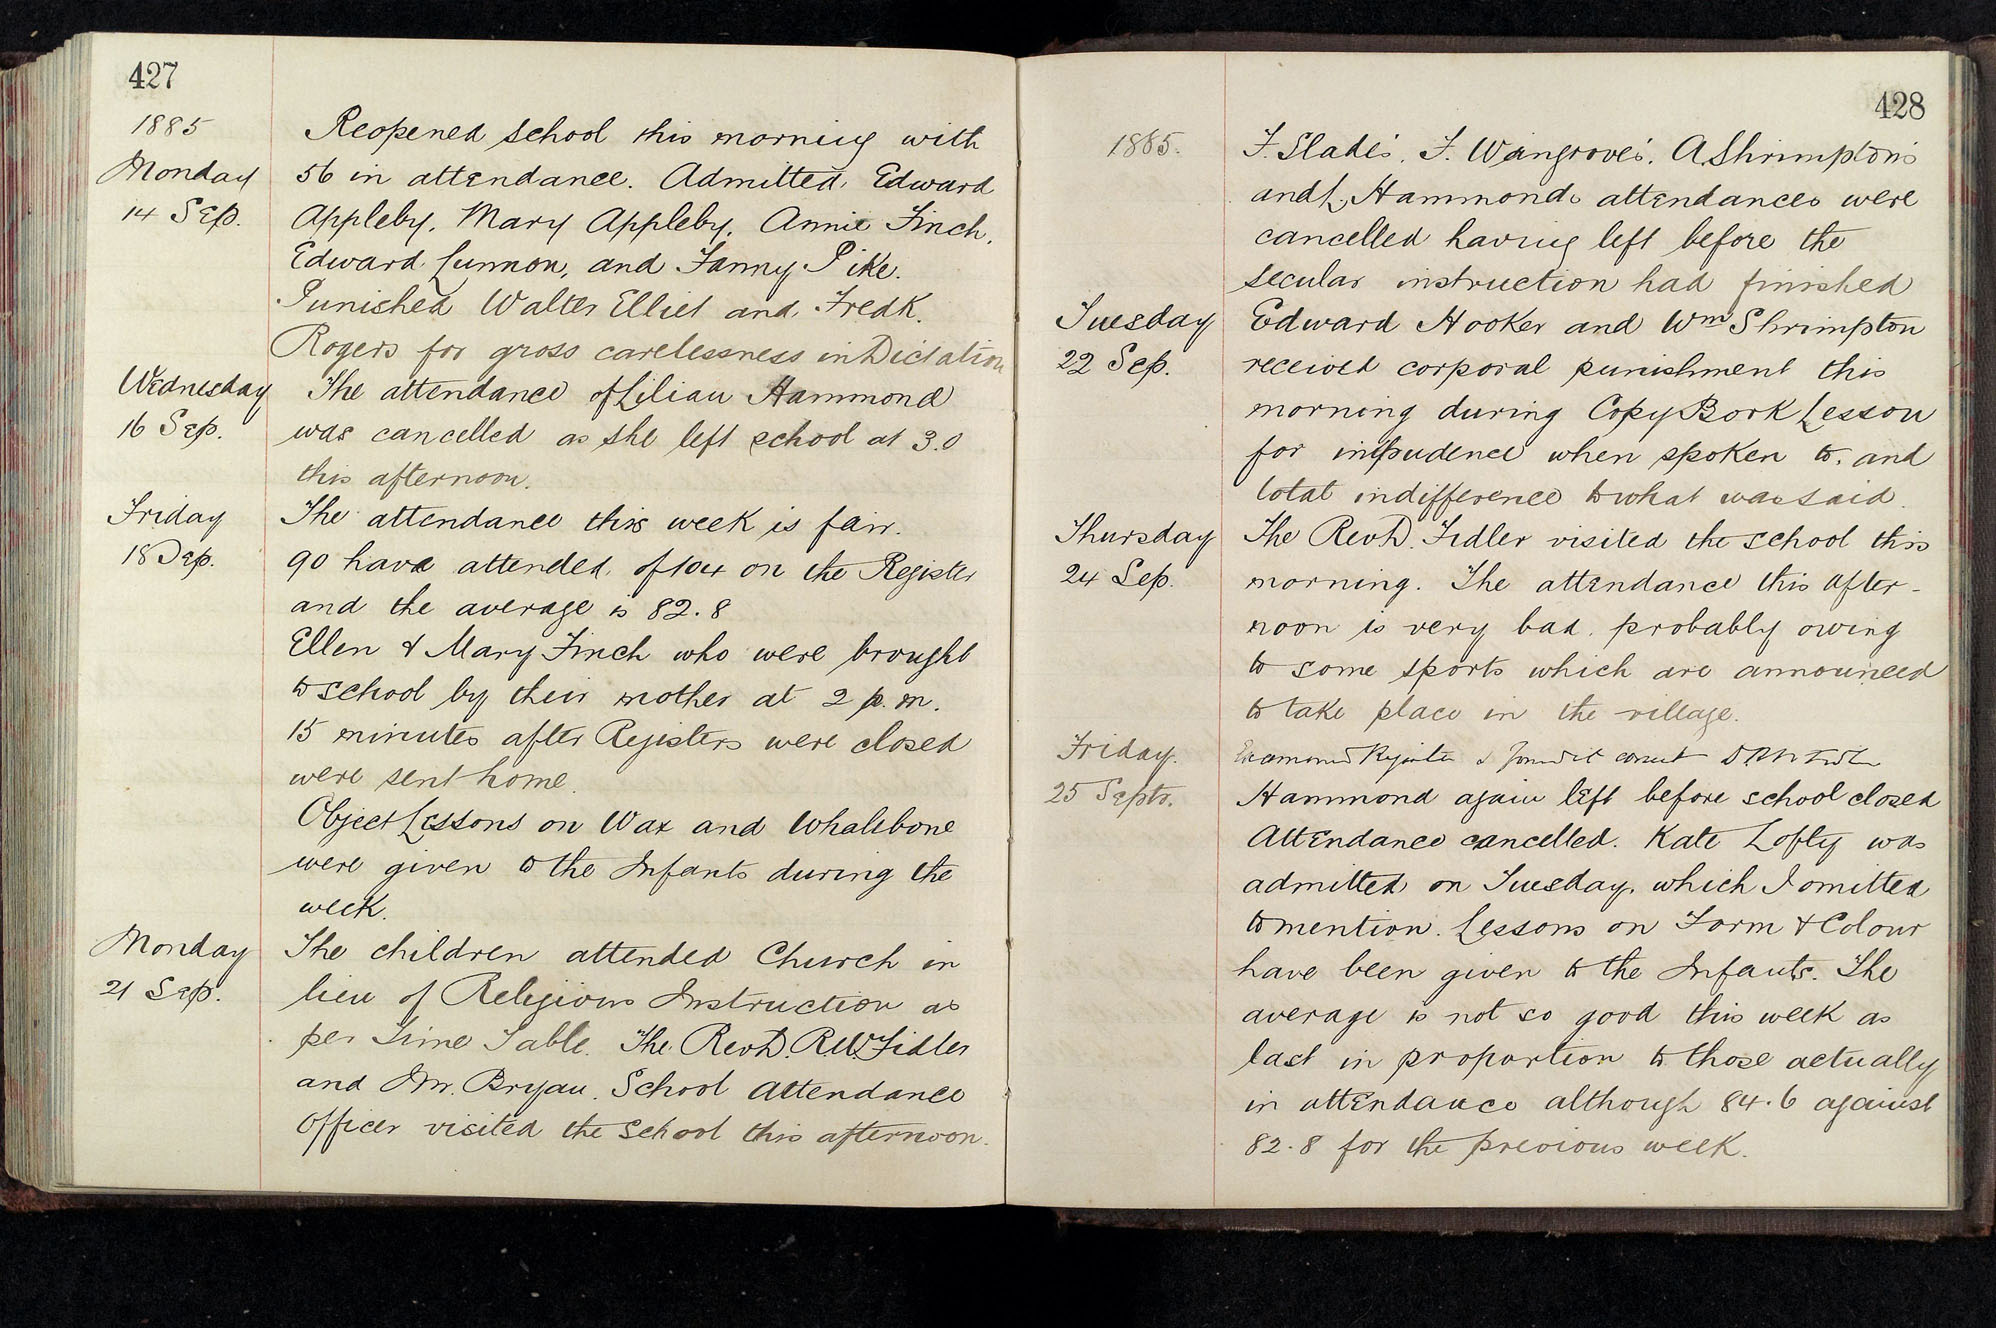 427
1885
Reopened school this morning with
Monday
56 in attendance. Admitted, Edward
14 Sep.
Appleby, Mary Appleby, Annie Finch,
Edward Lunnon, and Fanny Pike.
Punished Walter Elliet and Fredk.
Rogers for gross carelessness in Dictation
Wednesday
The attendance of Lilian Hammond
16 Sep.
was cancelled as she left school at 3.0
this afternoon.
Friday
The attendance this week is fair.
18 Sep.
90 have attended, of 104 on the Register
and the average is 82.8
Ellen & Mary Finch who were brought
to school by their mother at 2 p.m.
15 minutes after Registers were closed
were sent home.
Object Lessons on Wax and Whalebone
were given to the Infants during the
week.
Monday
The children attended Church in
21 Sep.
lieu of Religious Instruction as
per Time Table. The Revd. R.W. Fidler
and Mr. Bryan, School Attendance
Officer visited the School this afternoon.
428
1885.
F. Slade's, F. Wangrove's, A Shrimpton's
and L. Hammonds attendances were
cancelled having left before the
secular instruction had finished
Tuesday
Edward Hooker and Wm Shrimpton
22 Sep.
received corporal punishment this
morning during Copy Book Lesson
for impudence when spoken to, and
total indifference to what was said.
Thursday
The Revd. Fidler visited the school this
24 Sep.
morning. The attendance this after-
noon is very bad, probably owing
to some sports which are announced
to take place in the village.
Friday.
Examined Register & found it correct
25 Septr.
Hammond again left before school closed
Attendance cancelled. Kate Lofty was
admitted on Tuesday, which I omitted
to mention. Lessons on Form & Colour
have been given to the Infants. The
average is not so good this week as
last in proportion to those actually
in attendance although 84.6 against
82.8 for the previous week.